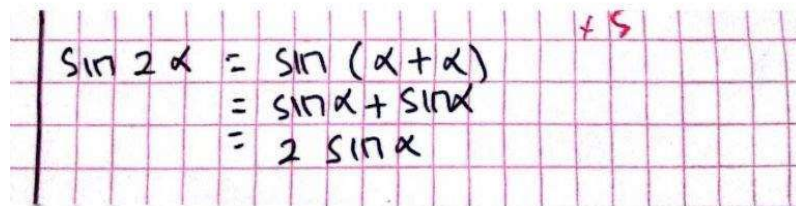 +5
sin 2α = sin (α+α)
= sinα + sinα
= 2 sinα